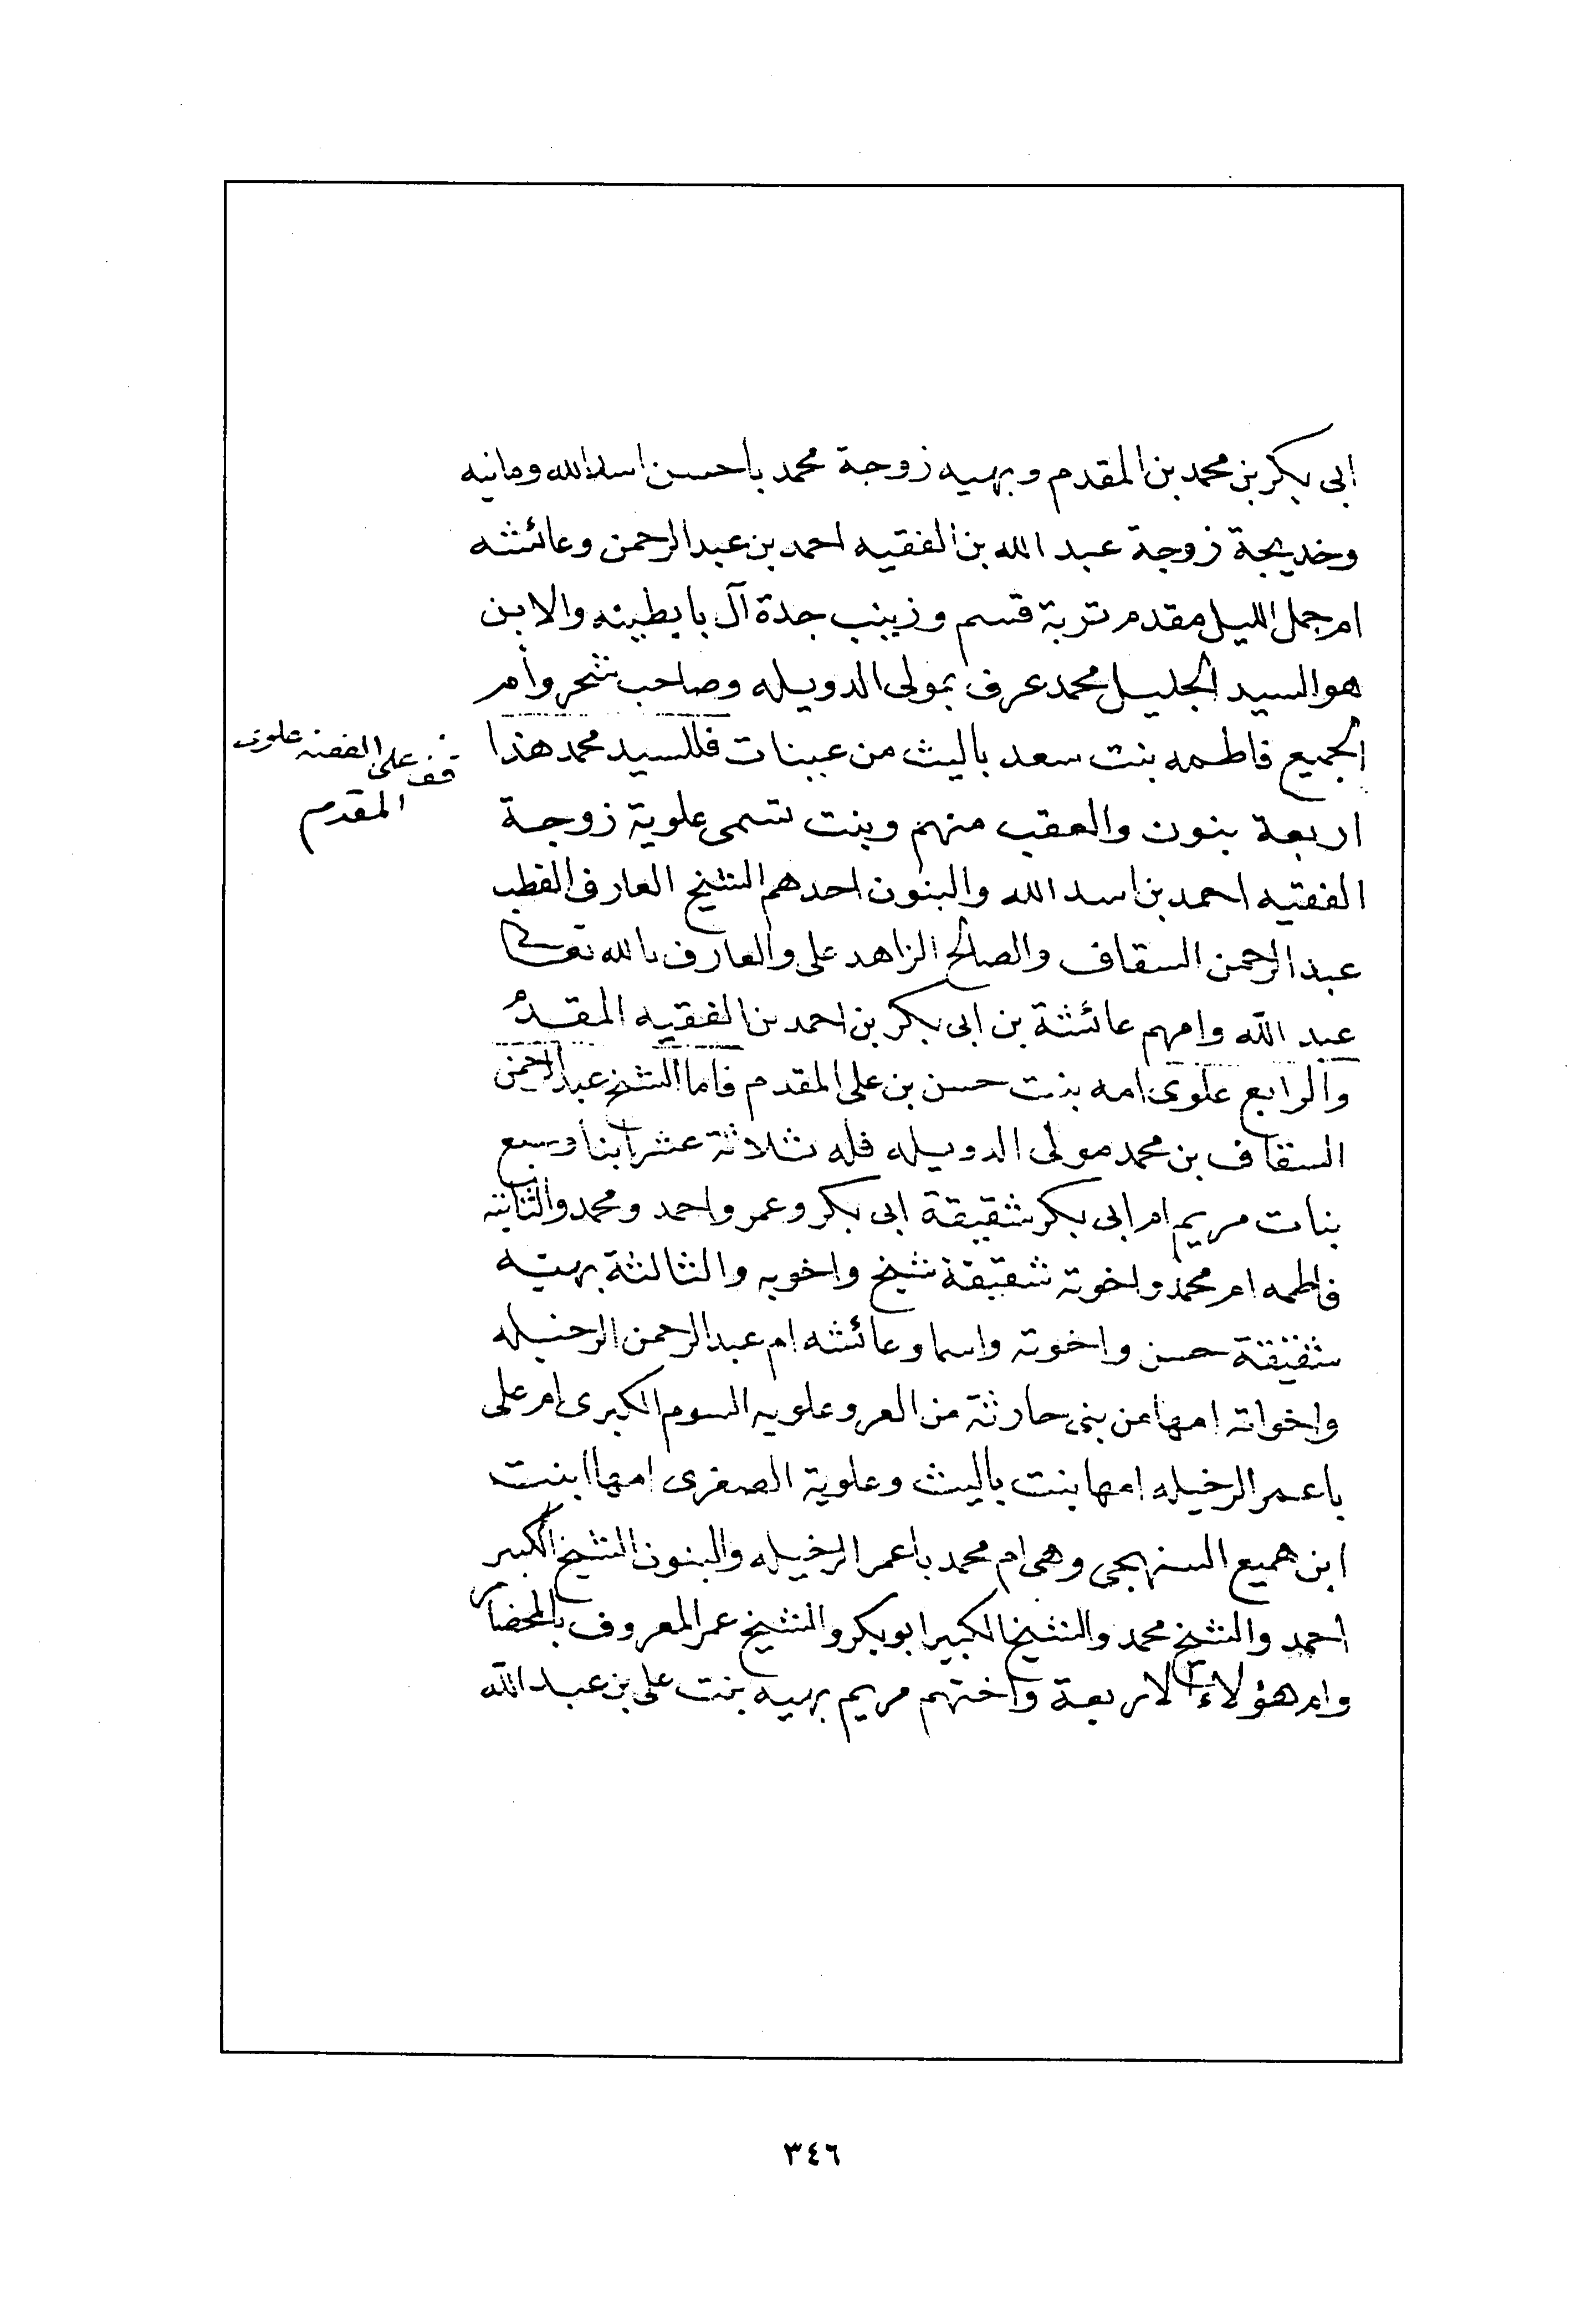 ابى بكر بن محمد بن المقدم وبهيه زوجة محمد باحسن اسد الله ومانيه
وخديجة زوجة عبد الله بن الفقيه احمد بن عبد الرحمن وعائشه
ام جمل الليل مقدم تربة قسم وزينب جدة آل بابطينه والابن
هو السيد الجليل محمد عرف بمولى الدويله وصاحب شحر وأم
الجميع فاطمه بنت سعد باليث من عبينات فللسيد محمد هذا
اربعة بنون والعقب منهم وبنت تسمى علوية زوجة
الفقيه احمد بن اسد الله والبنون احدهم الشيخ العارف القطب
عبد الرحمن السقاف والصالح الزاهد على والعارف بالله تعالى
عبد الله وامهم عائشة بن ابى بكر بن احمد بن الفقيه المقدم
والرابع علوى امه بنت حسن بن على المقدم فاما الشيخ عبد الرحمن
السقاف بن محمد مولى الدويله فله ثلاثة عشر ابنا وسبع
بنات مريم ام ابى بكر شقيقة ابى بكر وعمر واحمد ومحمد والثانيه
فاطمه ام محمد واخوته شقيقة شيخ واخويه والثالثة بهيه
شقيقة حسن واخوته واسما وعائشه ام عبد الرحمن الرخيله
واخواته امها من بنى حارثة من العر وعلويه السوم الكبرى ام على
باعمر الرخيله امها بنت باليث وعلوية الصغرى امها ابنت
ابن هميع السنهجى وهى ام محمد باعمر الرخيله والبنون الشيخ الكبير
احمد والشيخ محمد والشيخ الكبير ابو بكر والشيخ عمر المعروف بالمحضار
وام هؤلاء الاربعة واختهم مريم بهيه بنت على بن عبد الله
قف على علوى
المقدم
٣٤٦